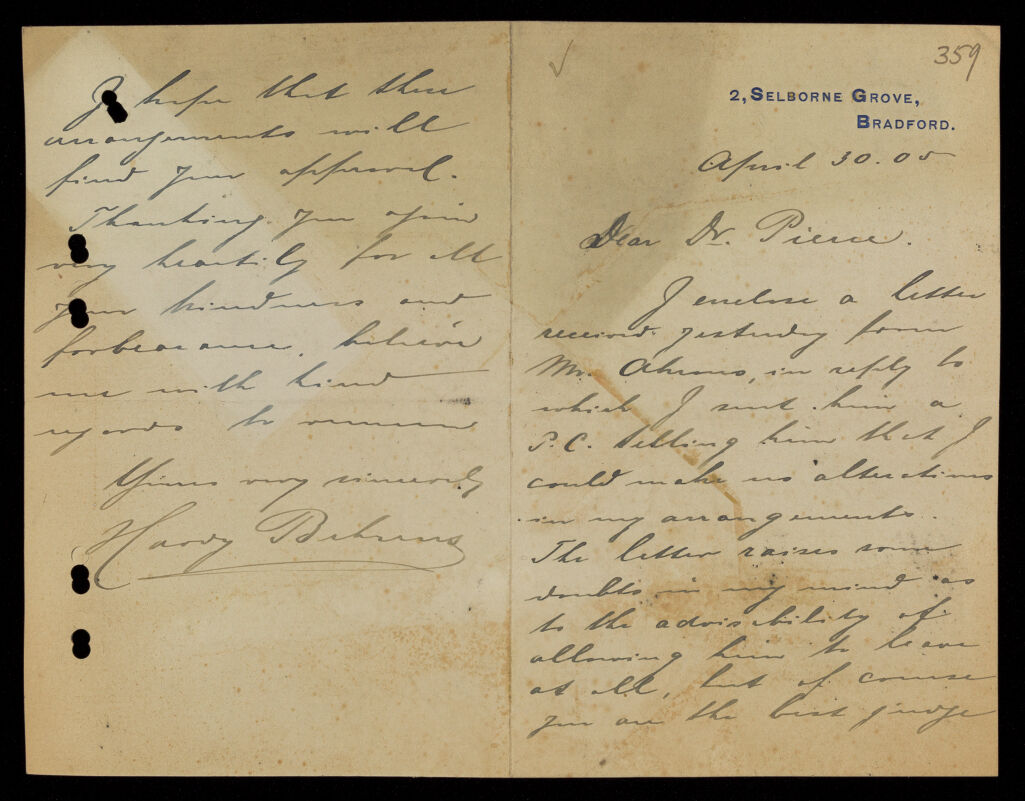 359
2, SELBORNE GROVE,
BRADFORD.
April 30. 05
Dear Dr. Pierce.
I enclose a letter
received yesterday from
Mr. Ahrons, in reply to
which I sent him a
P.C. telling him that I
could make no alterations
in my arrangements.
The letter raises some
doubts in my mind as
to the advisability of
allowing him to leave
at all, but of course
you are the best judge
I hope that these
arrangements will
find your approval.
Thanking you again
very heartily for all
your kindness and
forbearance, believe
me with kind
regards to remain
Yours very sincerely
Harry Behrens